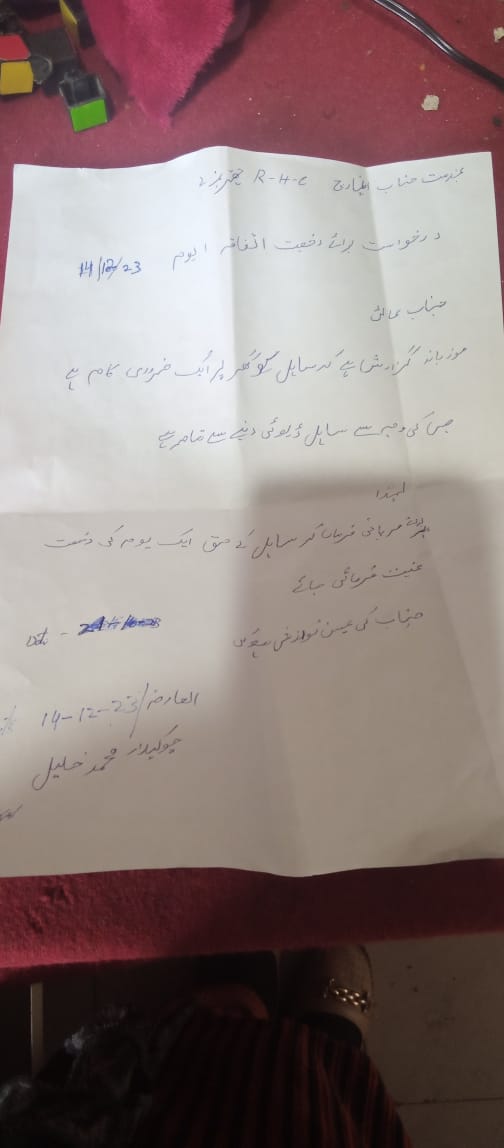 بخدمت جناب انچارج R-H-C
درخواست برائے رخصت اتفاقیہ 1 یوم 14/12/23
جناب عالی
مودبانہ گزارش ہے کہ سایل کو گھر پر ایک ضروری کام ہے
جس کی وجہ سے سایل ڈیوٹی دینے سے قاصر ہے
لہذا
مہربانی فرما کر سایل کے حق ایک یوم کی رخصت
عنیت فرمائی جائے
جناب کی عین نوازش ہوگی
العارض 14-12-23
چوکیدار محمد خلیل